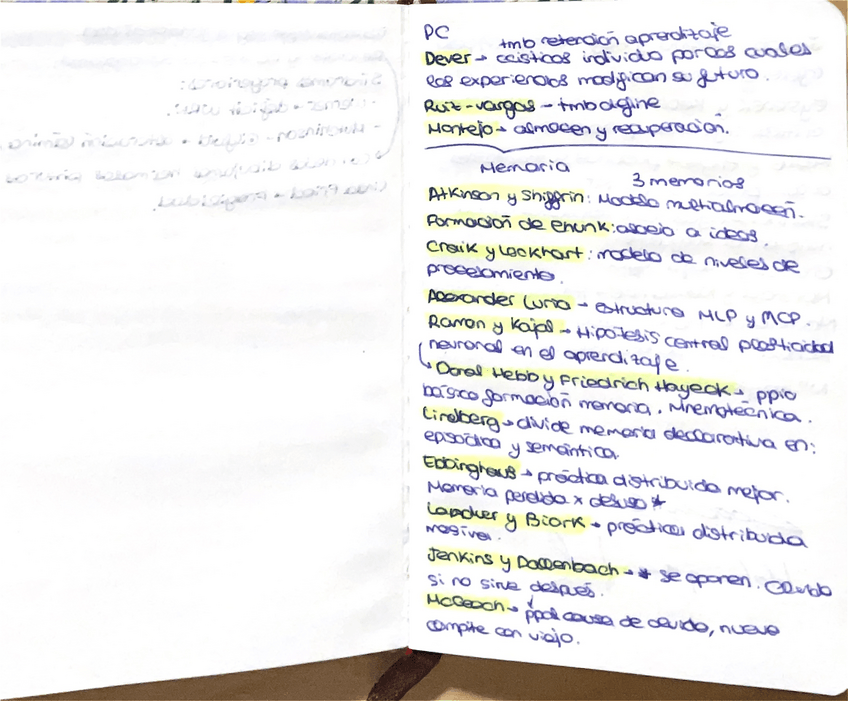 PC
tmb retención aprendizaje
Dever → ccísticas individuo por las cuales
las experiencias modifican su futuro.
Ruiz-Vargas → tmb define
Montejo → almacen y recuperación.
Memoria
3 memorias
Atkinson y Shiffrin: Modelo multialmacén.
Formación de chunk: asocia a ideas.
Craik y Lockhart: modelo de niveles de
procesamiento.
Alexander Luria → estructura MLP y MCP.
Ramon y Kajal → Hipótesis central plasticidad
neuronal en el aprendizaje.
Donal Hebb y Friedrich Hayeck → ppio
básico formación memoria. Mnemotécnica.
Lindberg → divide memoria declarativa en:
episódica y semántica.
Ebbinghaus → práctica distribuida mejor.
Memoria perdida x desuso *
Landker y Biork → práctica distribuida
masiva.
Jenkins y Dallenbach → * se oponen. Olvido
si no sirve después.
McGeoch → ppal causa de olvido, nuevo
compite con viejo.